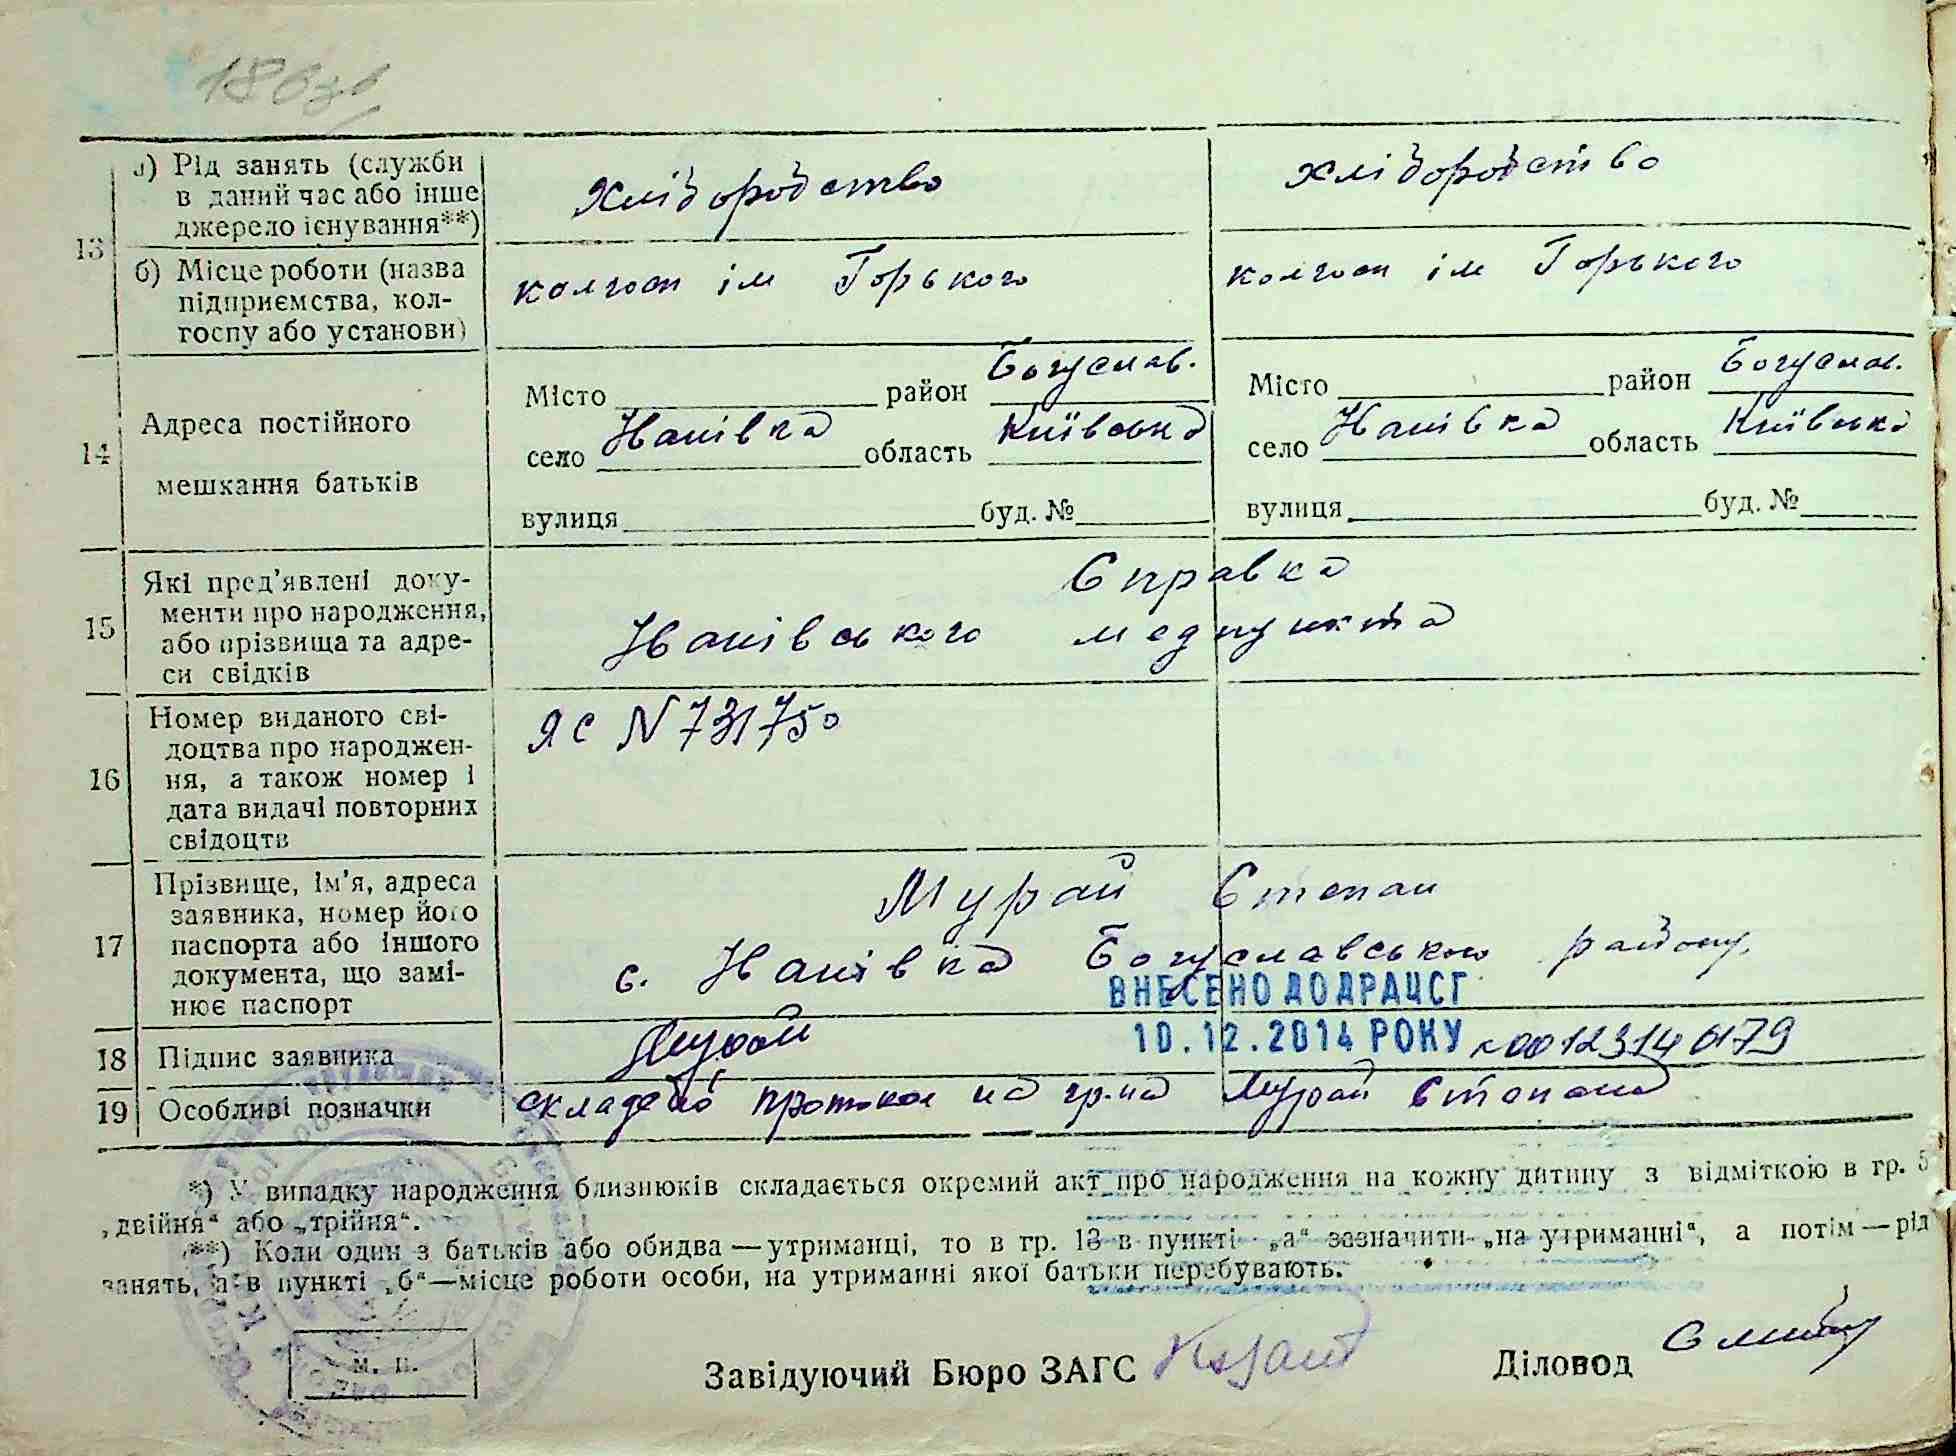 186зв
а) Рід занять (служби
в даний час або інше
джерело існування**)
Хліборобство
Хліборобство
13
б) Місце роботи (назва
підприємства, кол-
госпу або установи)
колгосп ім Горького
колгосп ім Горького
14
Адреса постійного
мешкання батьків
Місто район Богуслав.
село Іванівка область Київська
вулиця буд. №
Місто район Богуслав.
село Іванівка область Київська
вулиця буд. №
15
Які пред'явлені доку-
менти про народження,
або прізвища та адре-
си свідків
Справка
Іванівського медпункта
16
Номер виданого сві-
доцтва про народжен-
ня, а також номер і
дата видачі повторних
свідоцтв
ЯС N 731750
17
Прізвище, ім'я, адреса
заявника, номер його
паспорта або іншого
документа, що замі-
нює паспорт
Мурай Степан
с. Іванівка Богуславського району.
ВНЕСЕНО ДО ДРАЦСГ
10.12.2014 РОКУ 0012314679
18 Підпис заявника
Мурай
19 Особливі позначки
складено протокол на гр-на Мурай Степана
*) У випадку народження близнюків складається окремий акт про народження на кожну дитину з відміткою в гр. 5
„двійня“ або „трійня“.
**) Коли один з батьків або обидва—утриманці, то в гр. 13 в пункті „а“ зазначити „на утриманні“, а потім—рід
занять, а в пункті „б“—місце роботи особи, на утриманні якої батьки перебувають.
М. П.
Завідуючий Бюро ЗАГС
Діловод